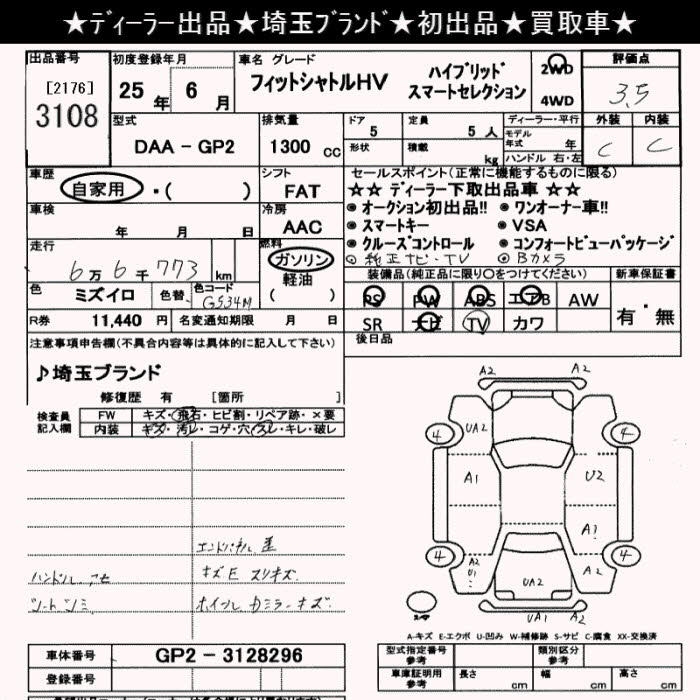 ★ディーラー出品★埼玉ブランド★初出品★買取車★
出品番号
[2176]
3108
初度登録年月
25 年 6 月
車名 グレード
フィットシャトルHV
ハイブリッド
スマートセレクション
2WD
4WD
評価点
3.5
型式
DAA - GP2
排気量
1300 cc
ドア
5
形状
定員
5 人
積載
kg
ディーラー・平行
モデル
年式 年
ハンドル 右・左
外装
C
内装
C
車歴
自家用 ・( )
シフト
FAT
車検
年 月 日
冷房
AAC
走行
6万6千773 km
燃料
ガソリン
軽油
( )
色
ミズイロ
色替
色コード
G534M
R券 11,440 円
名変通知期限 月 日
セールスポイント(正常に機能するものに限る)
☆☆ ディーラー下取出品車 ☆☆
◉オークション初出品!! ◉ワンオーナー車!!
◉スマートキー ◉VSA
◉クルーズコントロール ◉コンフォートビューパッケージ
◎純正ナビ・TV ◎Bカメラ
装備品(純正品に限り○をつけてください)
新車保証書
PS PW ABS エアB AW
SR ナビ TV カワ
有・無
後日品
注意事項申告欄(不具合内容等は具体的に記入して下さい)
♪埼玉ブランド
修復歴 有 [箇所 ]
検査員
記入欄
FW キズ・飛石・ヒビ割・リペア跡・×要
内装 キズ・汚レ・コゲ・穴・スレ・キレ・破レ
エンドパネル 歪
ハンドル スレ
キズE スリキズ
シートシミ
ホイール カミラーキズ
A2
A2
UA2
4
4
A1
U2
A2
U1
A2
4
4
UA2
UA1
A2
A-キズ E-エクボ U-凹み W-補修跡 S-サビ C-腐食 XX-交換済
車体番号
GP2 - 3128296
登録番号
型式指定番号
参考
類別区分
参考
車庫証明用
参考
長さ cm
幅 cm
高さ cm